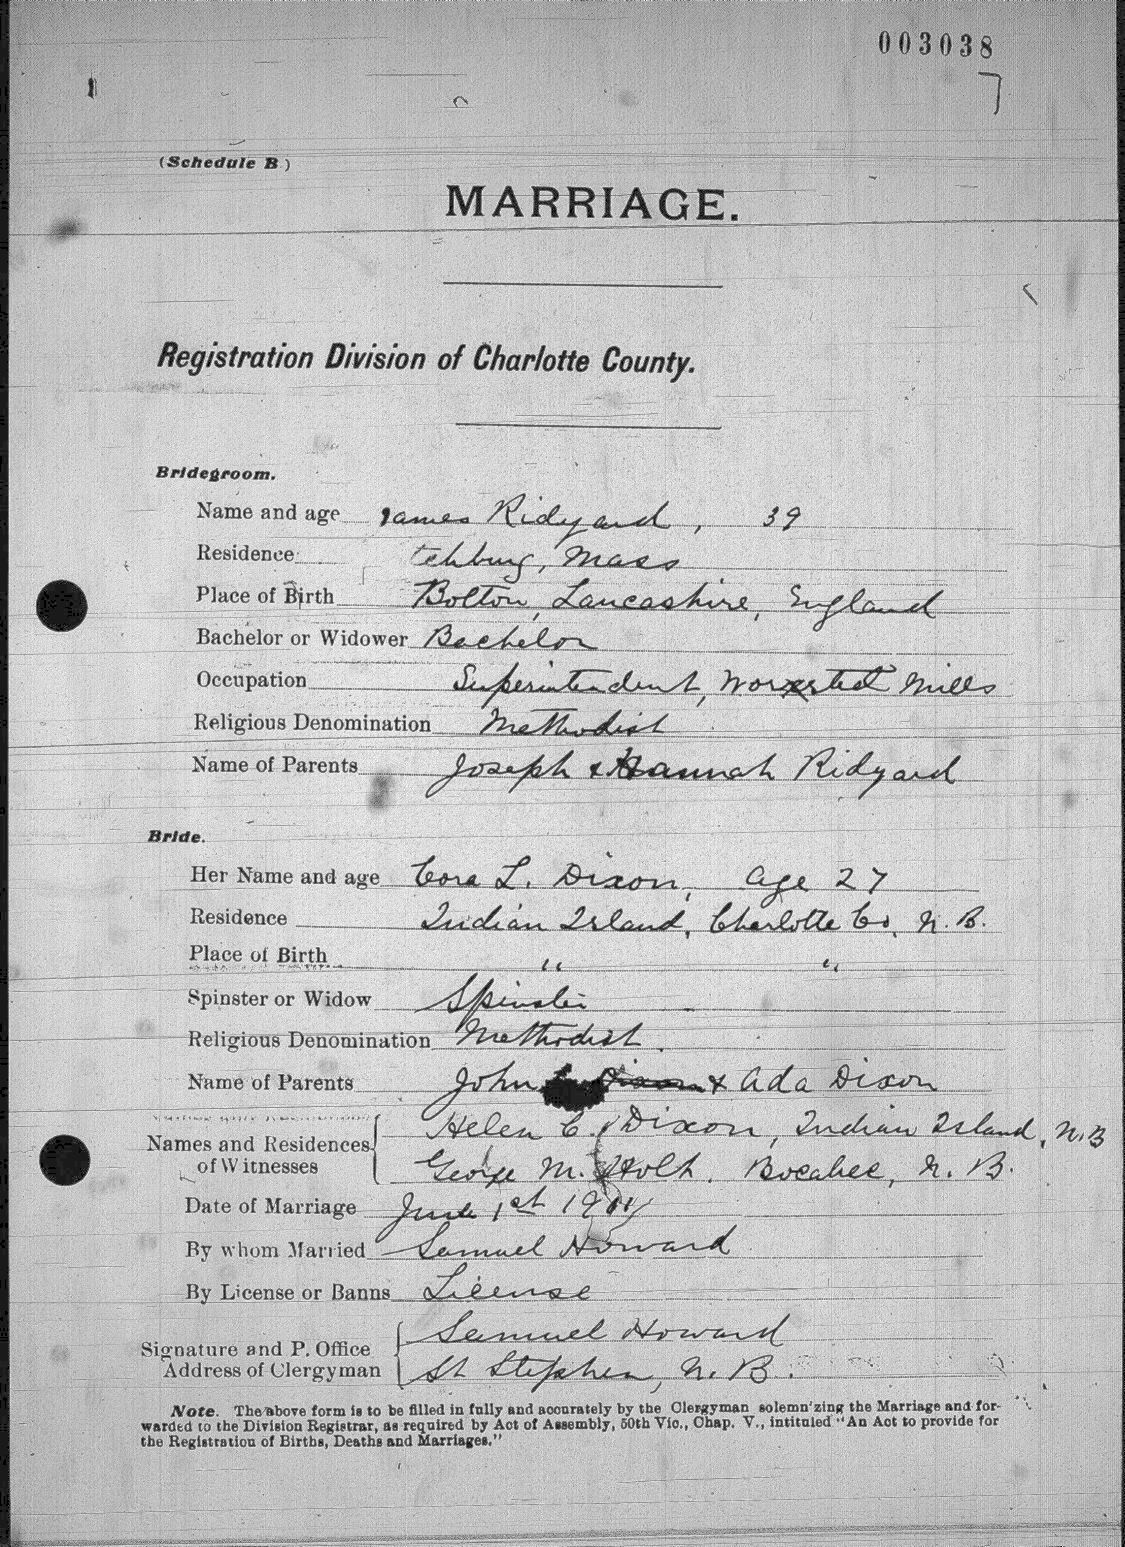 003038
7
(Schedule B)
MARRIAGE.
Registration Division of Charlotte County.
Bridegroom.
Name and age James Ridyard, 39
Residence tchburg, Mass
Place of Birth Bolton, Lancashire, England
Bachelor or Widower Bachelor
Occupation Superintendent, Worsted Mills
Religious Denomination Methodist
Name of Parents Joseph & Hannah Ridyard
Bride.
Her Name and age Cora L. Dixon, Age 27
Residence Indian Island, Charlotte Co, N. B.
Place of Birth " "
Spinster or Widow Spinster
Religious Denomination Methodist.
Name of Parents John & Ada Dixon
Names and Residences of Witnesses Helen C. Dixon, Indian Island, N.B
George M. Holt, Bocabec, N. B.
Date of Marriage June 1st
By whom Married Samuel Howard
By License or Banns License
Signature and P. Office Address of Clergyman Samuel Howard
St Stephen, N. B.
Note. The above form is to be filled in fully and accurately by the Clergyman solemn'zing the Marriage and for-
warded to the Division Registrar, as required by Act of Assembly, 50th Vic., Chap. V., intituled "An Act to provide for
the Registration of Births, Deaths and Marriages."